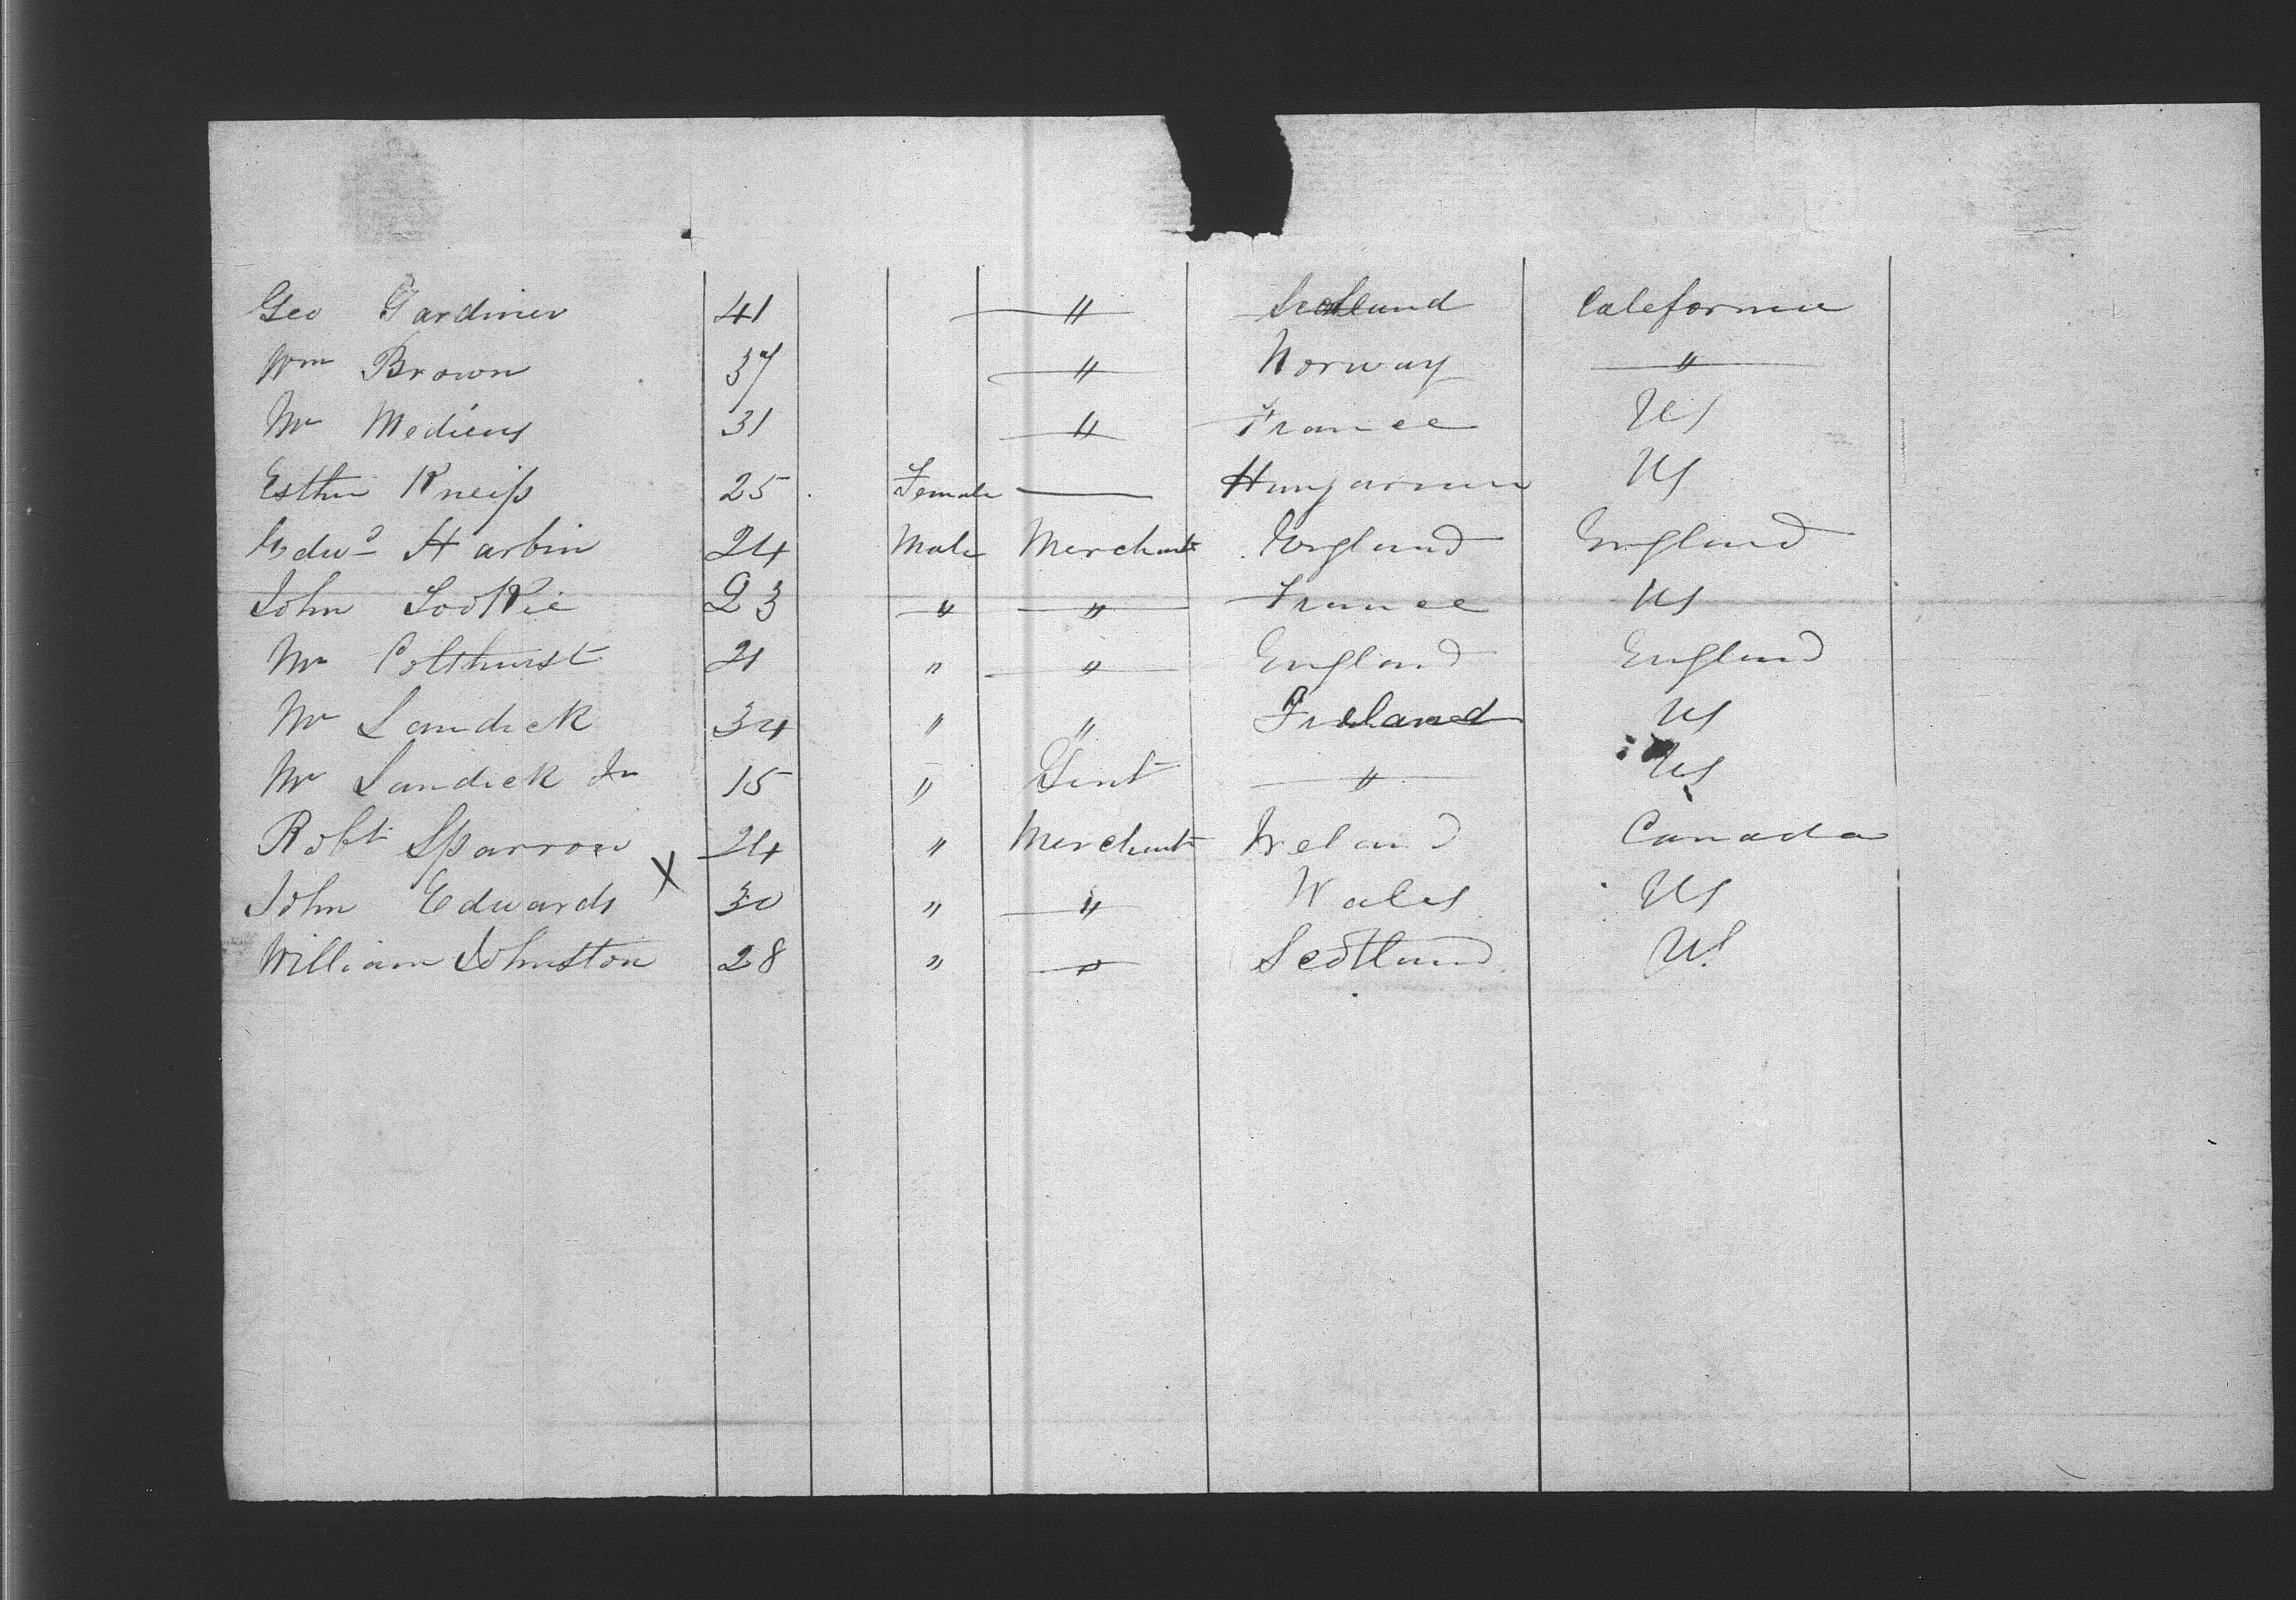 Geo Gardiner 41 " Scotland California
Wm Brown 37 " Norway "
Mr Medicus 31 " France US
Esther Kneiss 25 Female — Hungarian US
Edwd Harbin 24 Male Merchant England England
John LooKie 23 " " France US
Mr Colthurst 21 " " England England
Mr Landick 34 " " Ireland US
Mr Landick Jn 15 " Gent " US
Robt Sparrow 24 " Merchant Ireland Canada
John Edwards X 30 " " Wales US
William Johnston 28 " " Scotland US